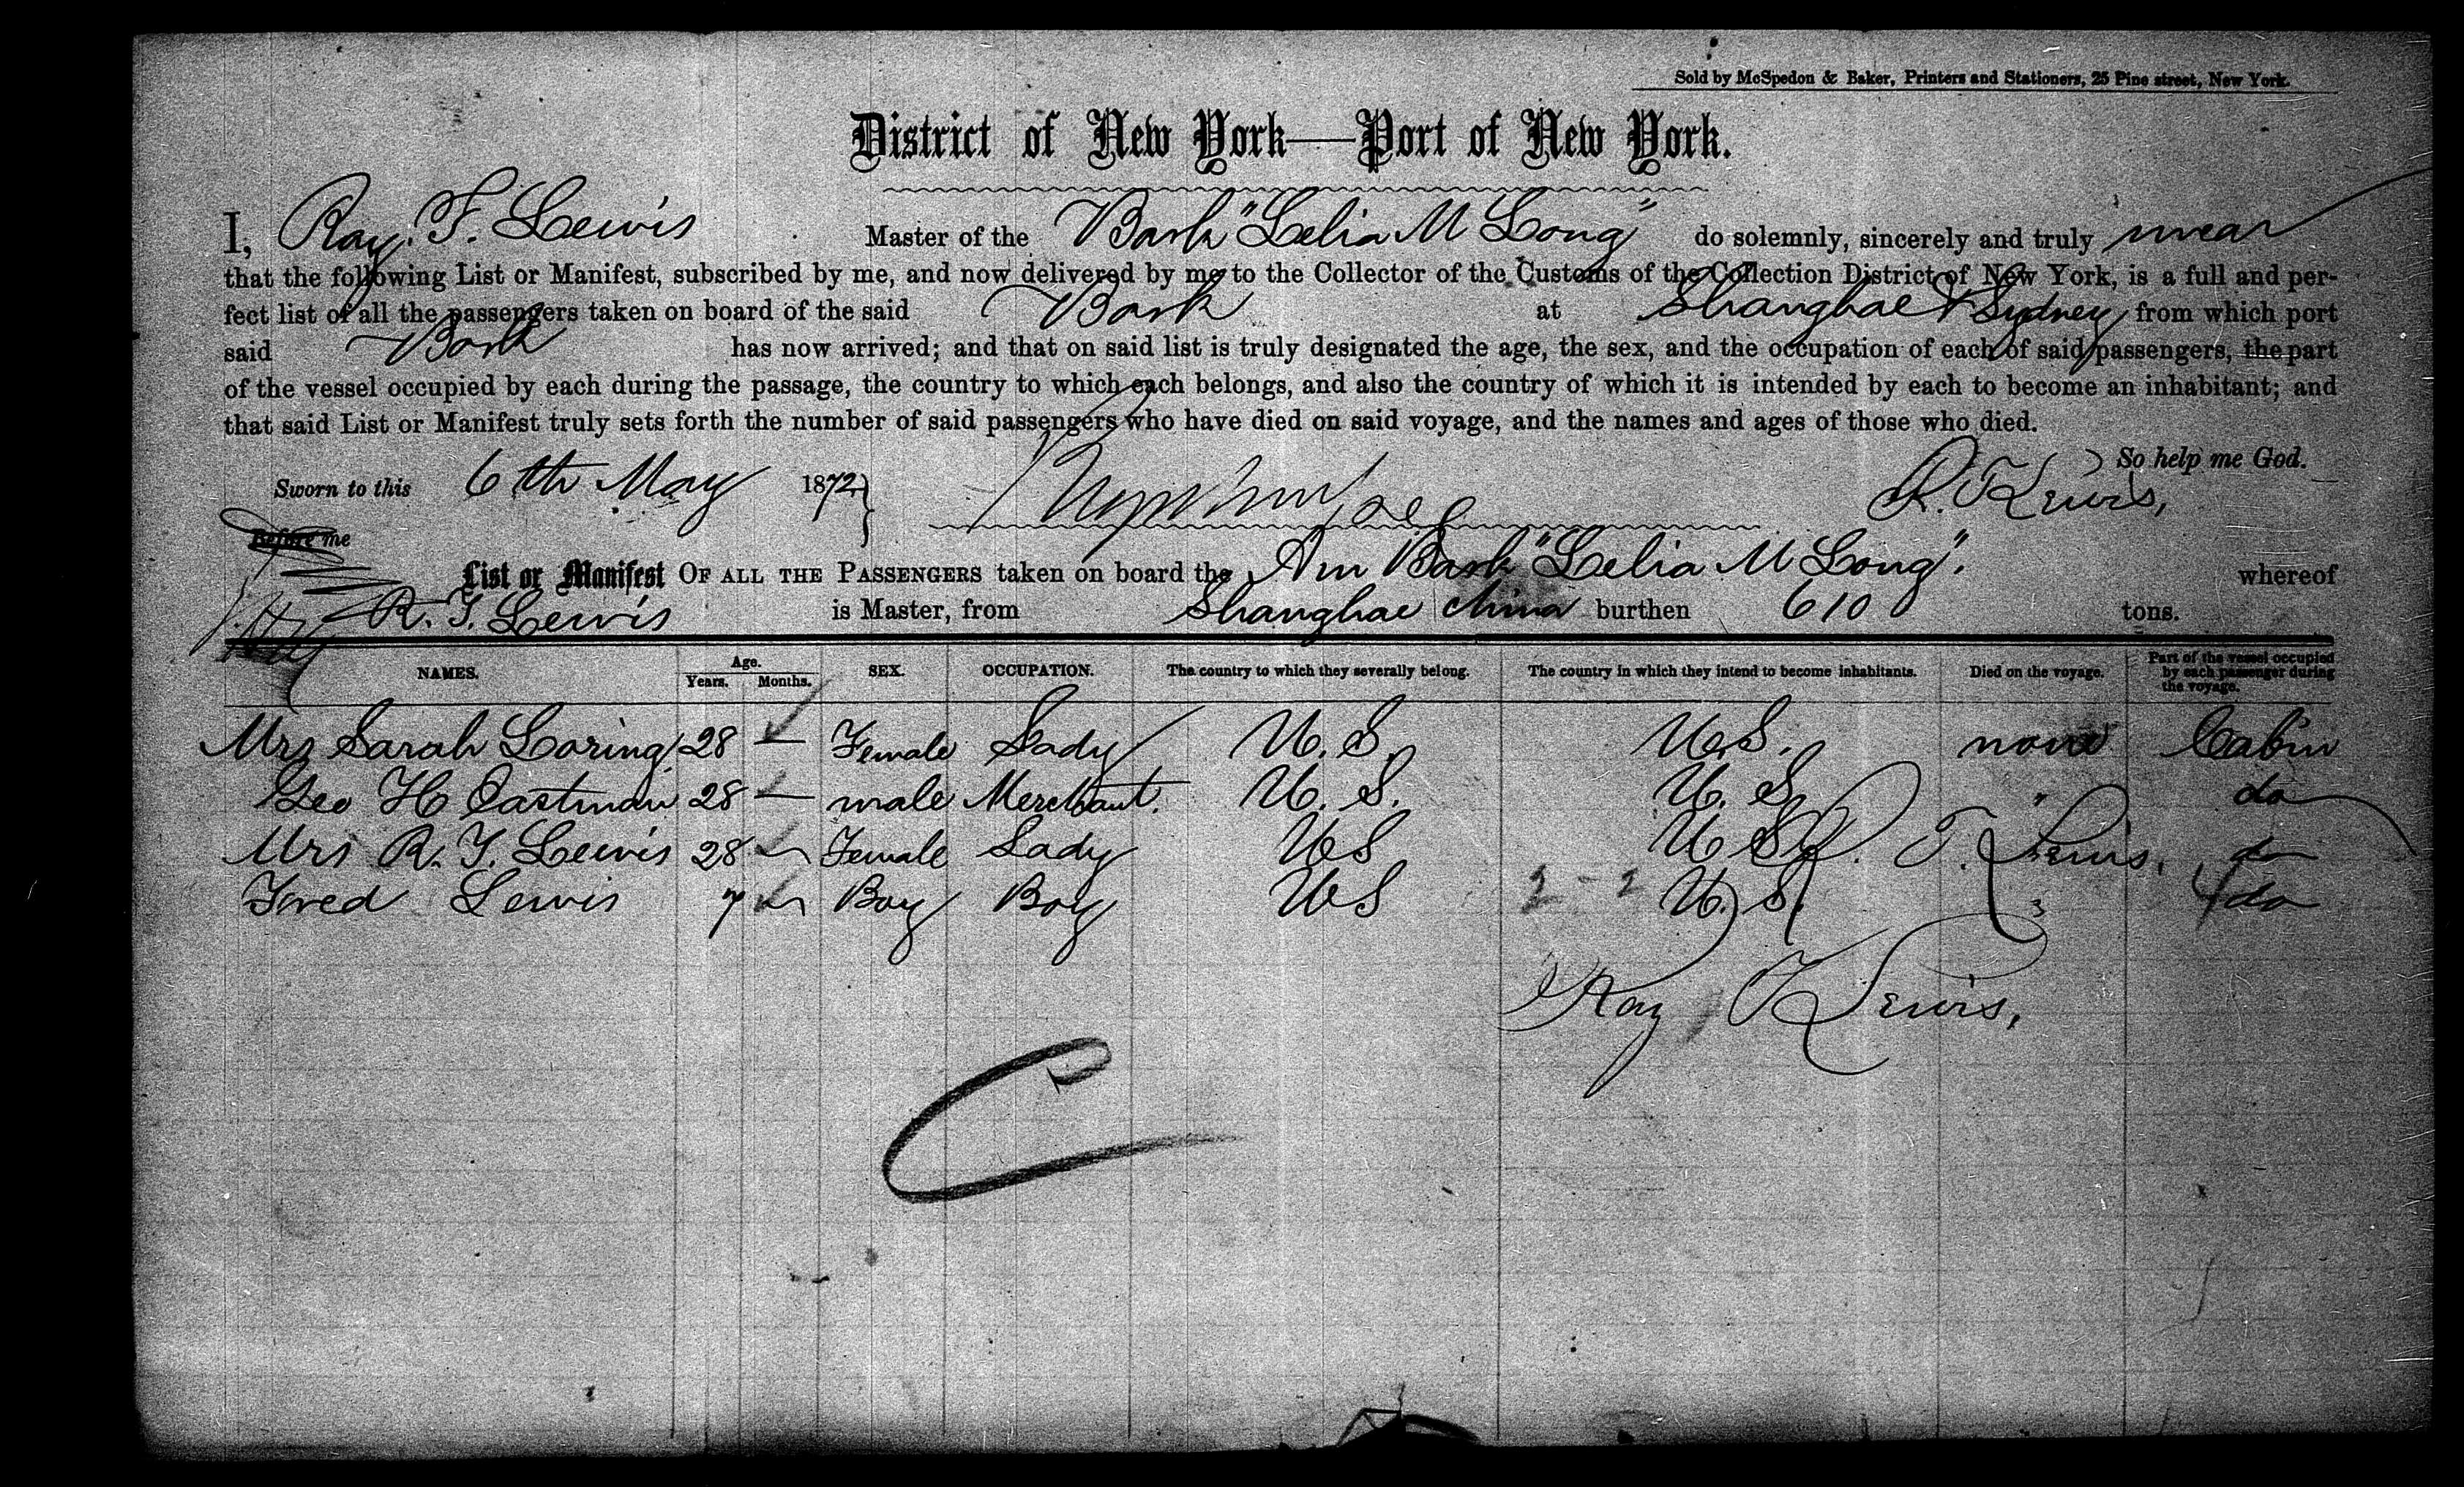 Sold by McSpedon & Baker, Printers and Stationers, 25 Pine street, New York.
District of New York—Port of New York.
I, Ray. F. Lewis Master of the Bark "Lelia M Long" do solemnly, sincerely and truly swear
that the following List or Manifest, subscribed by me, and now delivered by me to the Collector of the Customs of the Collection District of New York, is a full and per-
fect list of all the passengers taken on board of the said Bark at Shanghae & Sydney from which port
said Bark has now arrived; and that on said list is truly designated the age, the sex, and the occupation of each of said passengers, the part
of the vessel occupied by each during the passage, the country to which each belongs, and also the country of which it is intended by each to become an inhabitant; and
that said List or Manifest truly sets forth the number of said passengers who have died on said voyage, and the names and ages of those who died.
So help me God.
Sworn to this 6th May 1872 R. F. Lewis,
Before me
List or Manifest OF ALL THE PASSENGERS taken on board the Am Bark "Lelia M Long". whereof
R. F. Lewis is Master, from Shanghae China burthen 610 tons.
NAMES. Age. Years. Months. SEX. OCCUPATION. The country to which they severally belong. The country in which they intend to become inhabitants. Died on the voyage. Part of the vessel occupied by each passenger during the voyage.
Mrs Sarah Loring 28 — Female Lady U.S. U.S. none Cabin
Geo H Eastman 28 — male Merchant. U.S. U.S. " do
Mrs R. F. Lewis 28 Female Lady US US R. F. Lewis. do
Fred Lewis 7 Boy Boy US 2 - 2 U.S. 3 4 do
Ray F Lewis,
C